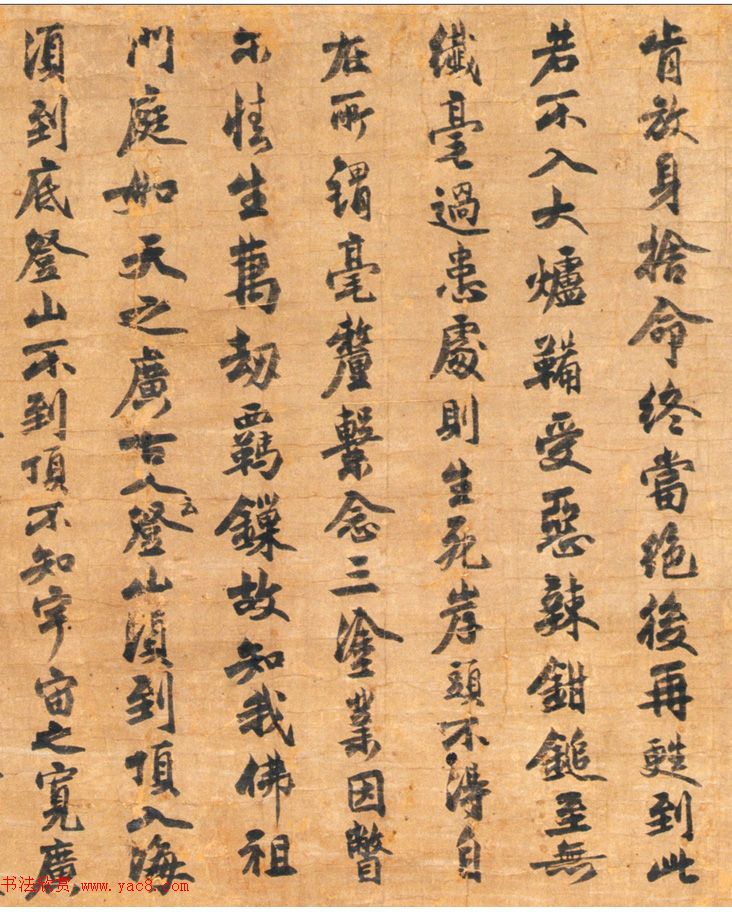 肯放身捨命終當絕後再甦到此
若不入大爐鞴受惡辣鉗鎚至無
纖毫過患處則生死岸頭不得自
在所謂毫釐繫念三塗業因瞥
尔情生萬劫羈鏁故知我佛祖
門庭如天之廣古人云登山須到頂入海
須到底登山不到頂不知宇宙之寬廣
书法欣赏 www.yac8.com